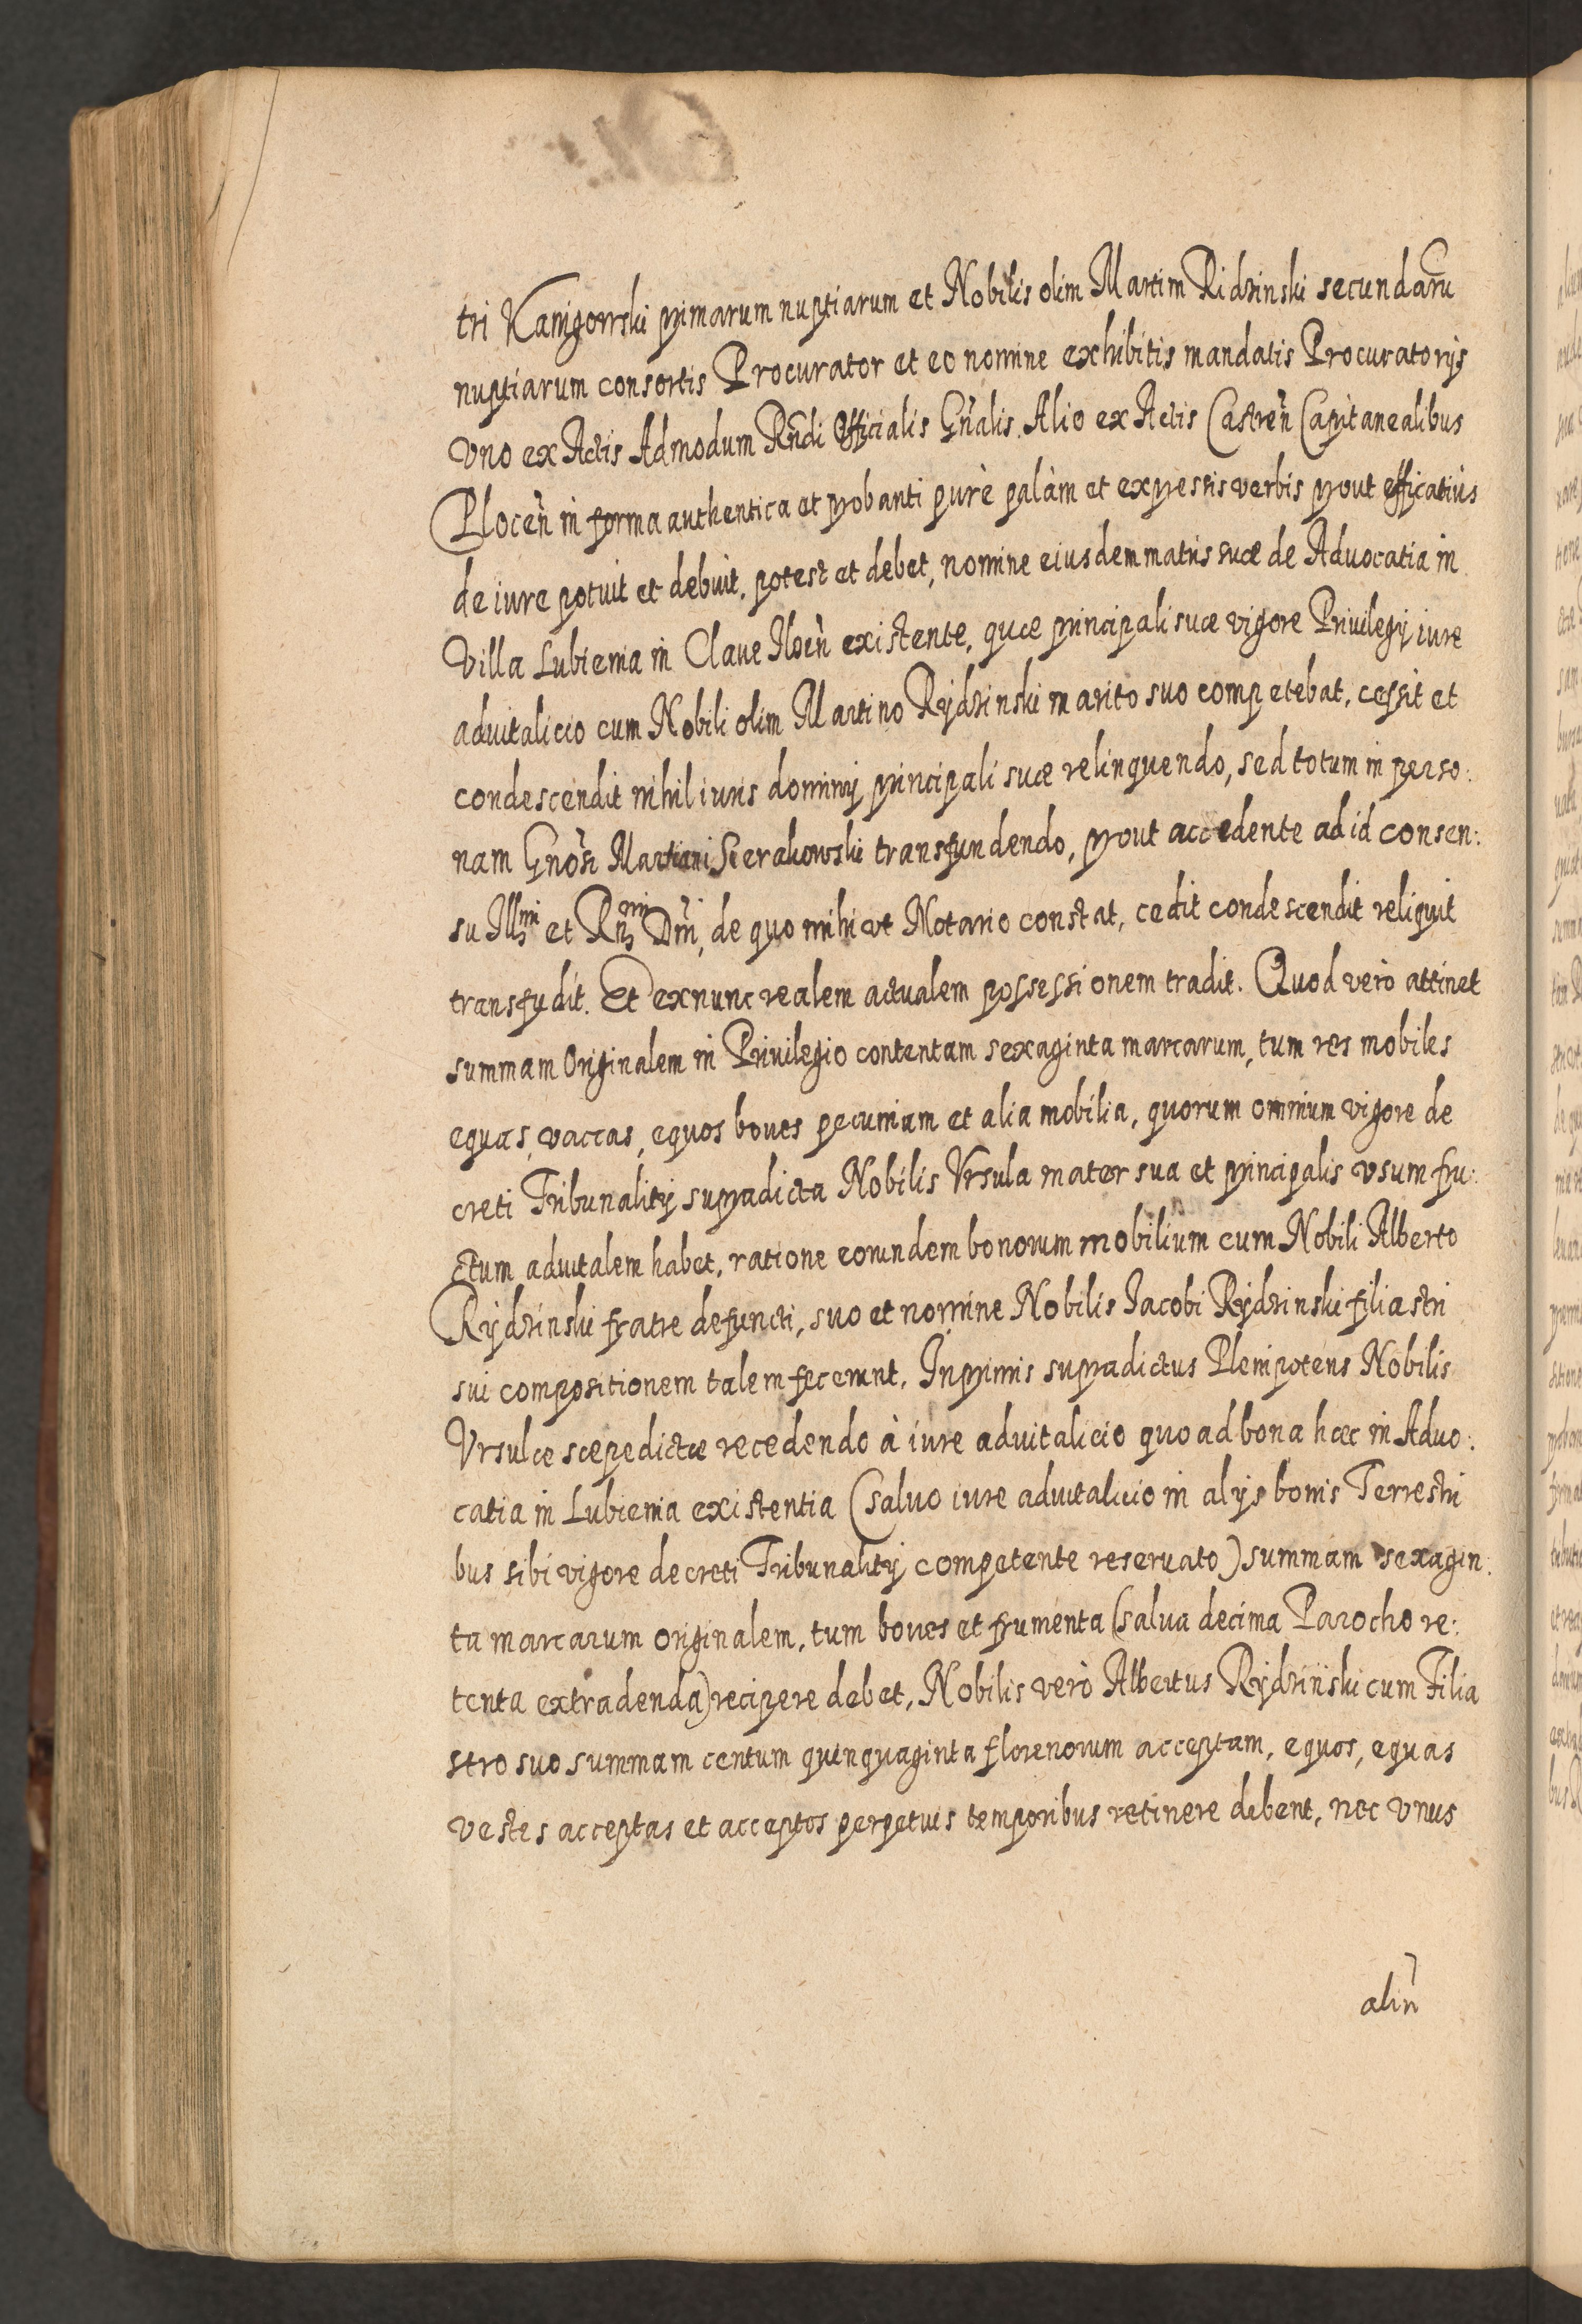 tri Kanigowski primarum nuptiarum et Nobilis olim Martini Ridzinski secundaru
nuptiarum consortis Procurator et eo nomine exhibitis mandatis Procuratorijs
vno ex Actis Admodum Rndi Officialis Gnalis. Alio ex Actis Castren Capitanealibus
Plocen in forma authentica et probanti purè palàm et expressis verbis prout efficatiùs
de iure potuit et debuit, potest et debet, nomine eiusdem matris suæ de Advocatia in
Villa Lubienia in Claue Ilocen existente, quæ principali suæ vigore Priuilegij iure
aduitalicio cum Nobili olim Martino Rÿdzinski marito suo competebat, cessit et
condescendit nihil iuris dominij principali suæ relinquendo, sed totum in perso:
nam Gnosi Martiani Sierakowski transfundendo, prout accedente ad id consen:
su Illmi et Rnmi Dni, de quo mihi vt Notario constat, cedit condescendit reliquit
transfudit. Et ex nunc realem actualem possessionem tradit. Quod verò attinet
summam Originalem in Priuilegio contentam sexaginta marcarum, tum res mobiles
equas, vaccas, equos boues pecuniam et alia mobilia, quorum omnium vigore de
creti Tribunalitij supradicta Nobilis Vrsula mater sua et principalis vsum fru:
ctum aduitalem habet, ratione eorundem bonorum mobilium cum Nobili Alberto
Rÿdzinski fratre defuncti, suo et nomine Nobilis Jacobi Rÿdzinski filiastri
sui compositionem talem fecerunt. Inprimis supradictus Plenipotens Nobilis
Vrsulæ sæpedictæ recedendo à iure aduitalicio quo ad bona hæc in Aduo:
catia in Lubienia existentia (saluo iure aduitalicio in alijs bonis Terrestri
bus sibi vigore decreti Tribunalitij competente reseruato) summam sexagin:
ta marcarum originalem, tum boues et frumenta (salua decima Parocho re:
tenta extradenda) recipere debet, Nobilis verò Albertus Rÿdzinski cum Filia
stro suo summam centum quinquaginta florenorum acceptam, equos, equas
vestes acceptas et acceptos perpetuis temporibus retinere debent, nec vnus
alin